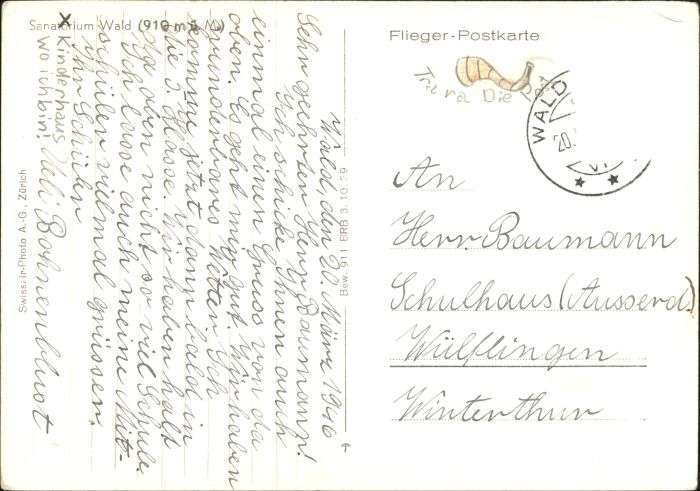 Sanatorium Wald (910 m ü. M.)
X Kinderhaus
wo ich bin!
Flieger-Postkarte
Trara Die Post
WALD
20.
VI
Wald, den 20. März 1946
Sehr geehrten Herr Baumann!
Ich schicke Ihnen auch
einmal einen Gruss von da
oben. Es geht mir gut. Wir haben
wunderbares Wetter. Ich
komme jetzt dann bald in
die 3 Klasse. Wir haben halt
da oben nicht so viel Schule.
Ich lasse auch meine Mit-
schüler vielmal grüssen.
Ihr Schüler
Ueli Bohnenblust
An
Herr Baumann
Schulhaus (Ausserd.)
Wülflingen
Winterthur
Swissair-Photo A.-G., Zürich
Bew. 911 ERB 3. 10. 39